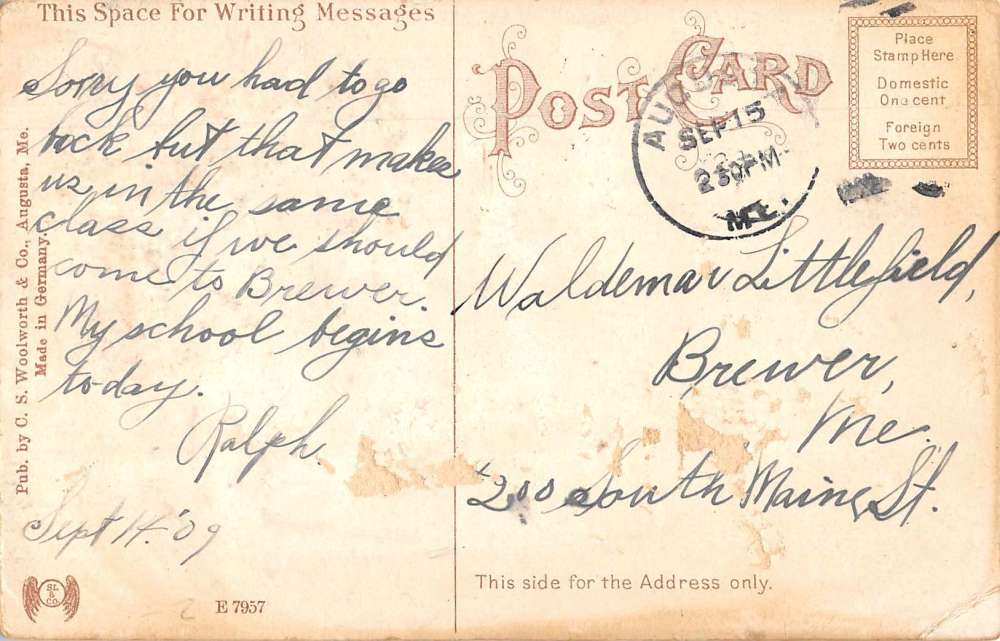 This Space For Writing Messages
Sorry you had to go
back but that makes
us in the same
class if we should
come to Brewer.
My school begins
to-day.
Ralph.
Sept 14. '09
Pub. by C. S. Woolworth & Co., Augusta, Me.
Made in Germany
SL & Co.
E 7957
POST CARD
AUGUSTA
SEP 15
2 30 PM
ME.
Place
Stamp Here
Domestic
One cent
Foreign
Two cents
Waldemar Littlefield,
Brewer,
Me.
200 South Maine St.
This side for the Address only.